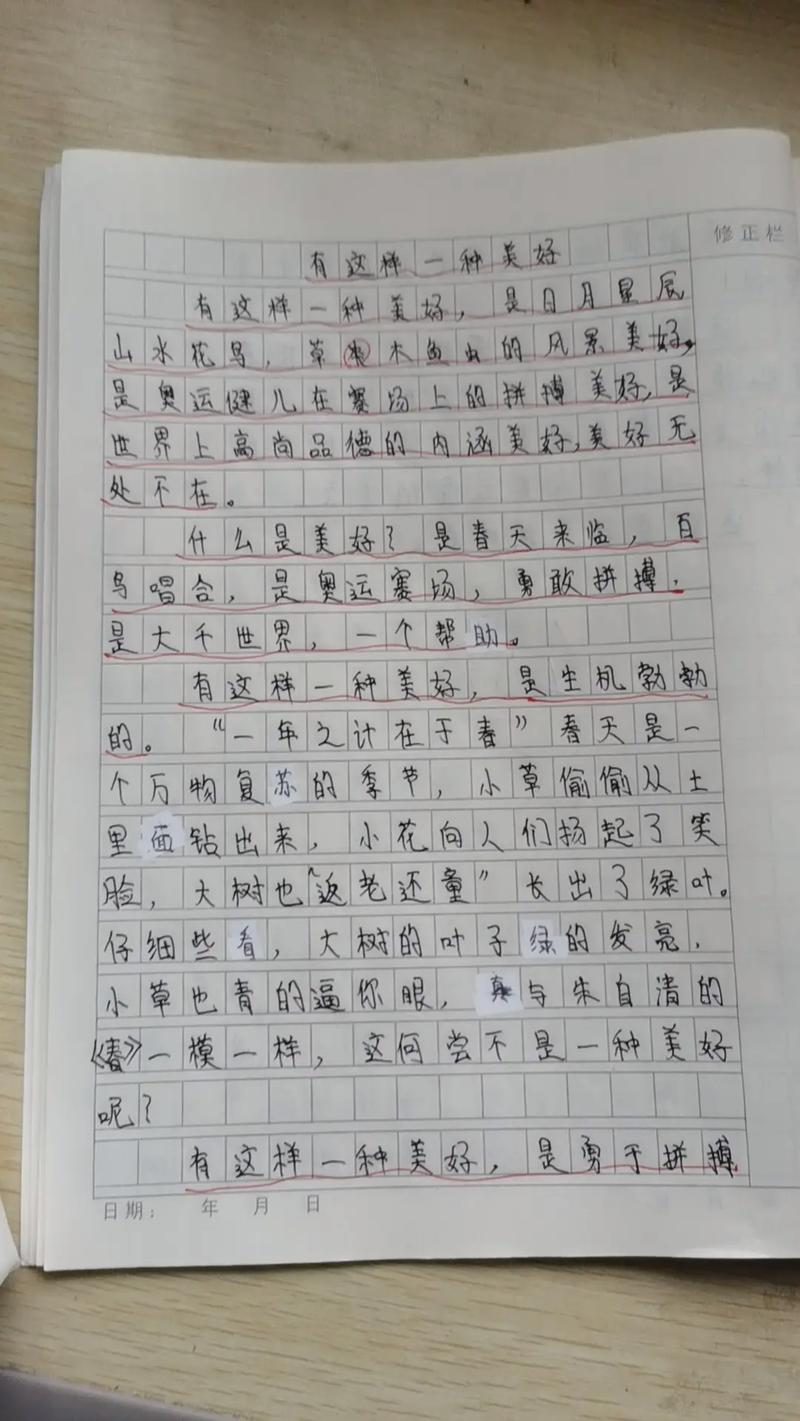 修正栏
有这样一种美好
有这样一种美好，是日月星辰
山水花鸟，草木鱼虫的风景美好，
是奥运健儿在赛场上的拼搏美好，是
世界上高尚品德的内涵美好，美好无
处不在。
什么是美好？是春天来临，百
鸟唱合，是奥运赛场，勇敢拼搏，
是大千世界，一个帮助。
有这样一种美好，是生机勃勃
的。“一年之计在于春”春天是一
个万物复苏的季节，小草偷偷从土
里面钻出来，小花向人们扬起了笑
脸，大树也“返老还童”长出了绿叶。
仔细些看，大树的叶子绿的发亮，
小草也青的逼你眼，真与朱自清的
《春》一模一样，这何尝不是一种美好
呢？
有这样一种美好，是勇于拼搏
日期： 年 月 日